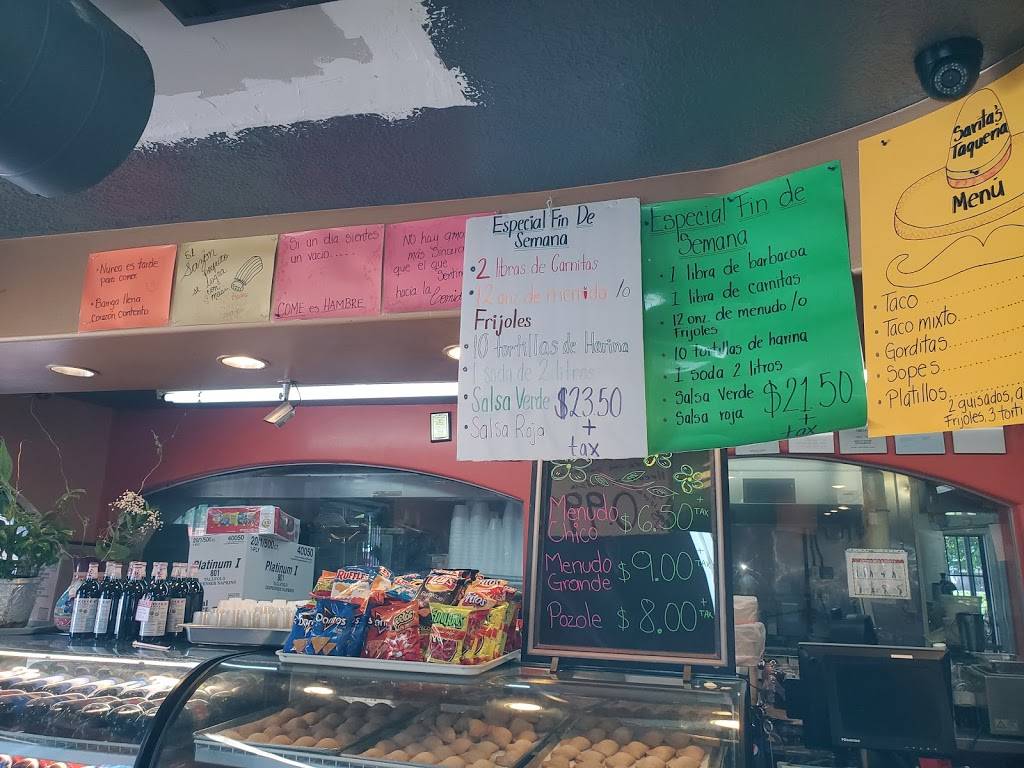 • Nunca es tarde
para comer.
• Barriga llena
corazón contento
Si un día sientes
un vacío.....
COME es HAMBRE.
No hay amor
más sincero
que el que
hacia la
Especial Fin De
Semana
• 2 libras de Carnitas
• 12 onz. de menudo /o
Frijoles
• 10 tortillas de Harina
• 1 soda de 2 litros
• Salsa Verde $23.50
• Salsa Roja +
tax
Especial Fin de
Semana
• 1 libra de barbacoa
• 1 libra de carnitas
• 12 onz. de menudo /o
Frijoles
• 10 tortillas de harina
• 1 soda 2 litros
• Salsa Verde $21.50
• Salsa roja +
tax
Sarita's
Taqueria
Menú
• Taco
• Taco mixto
• Gorditas
• Sopes
• Platillos
2 guisados,
Frijoles, 3
Menudo $6.50 + TAX
Chico
Menudo $9.00 + TAX
Grande
Pozole $8.00 + TAX
20/1/500ct 40050
1-PLY
Platinum I
801
TALLFOLD
DISPENSER NAPKINS
Platinum I
801
RUFFLES
Doritos